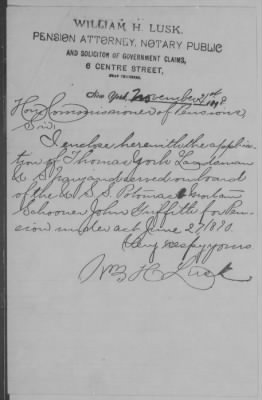 WILLIAM H. LUSK.
PENSION ATTORNEY, NOTARY PUBLIC
AND SOLICITOR OF GOVERNMENT CLAIMS,
6 CENTRE STREET,
New York, November 21st 1898.
Hon Commissioner of Pensions,
Sir,
I enclose herewith the applica-
tion of Thomas York Landsman
U S Navy and served on board
of the U. S. S. Potomac & Mortar
Schooner John Griffith for Pen-
sion under act June 27 1890.
Very respy yours
Wm H Lusk